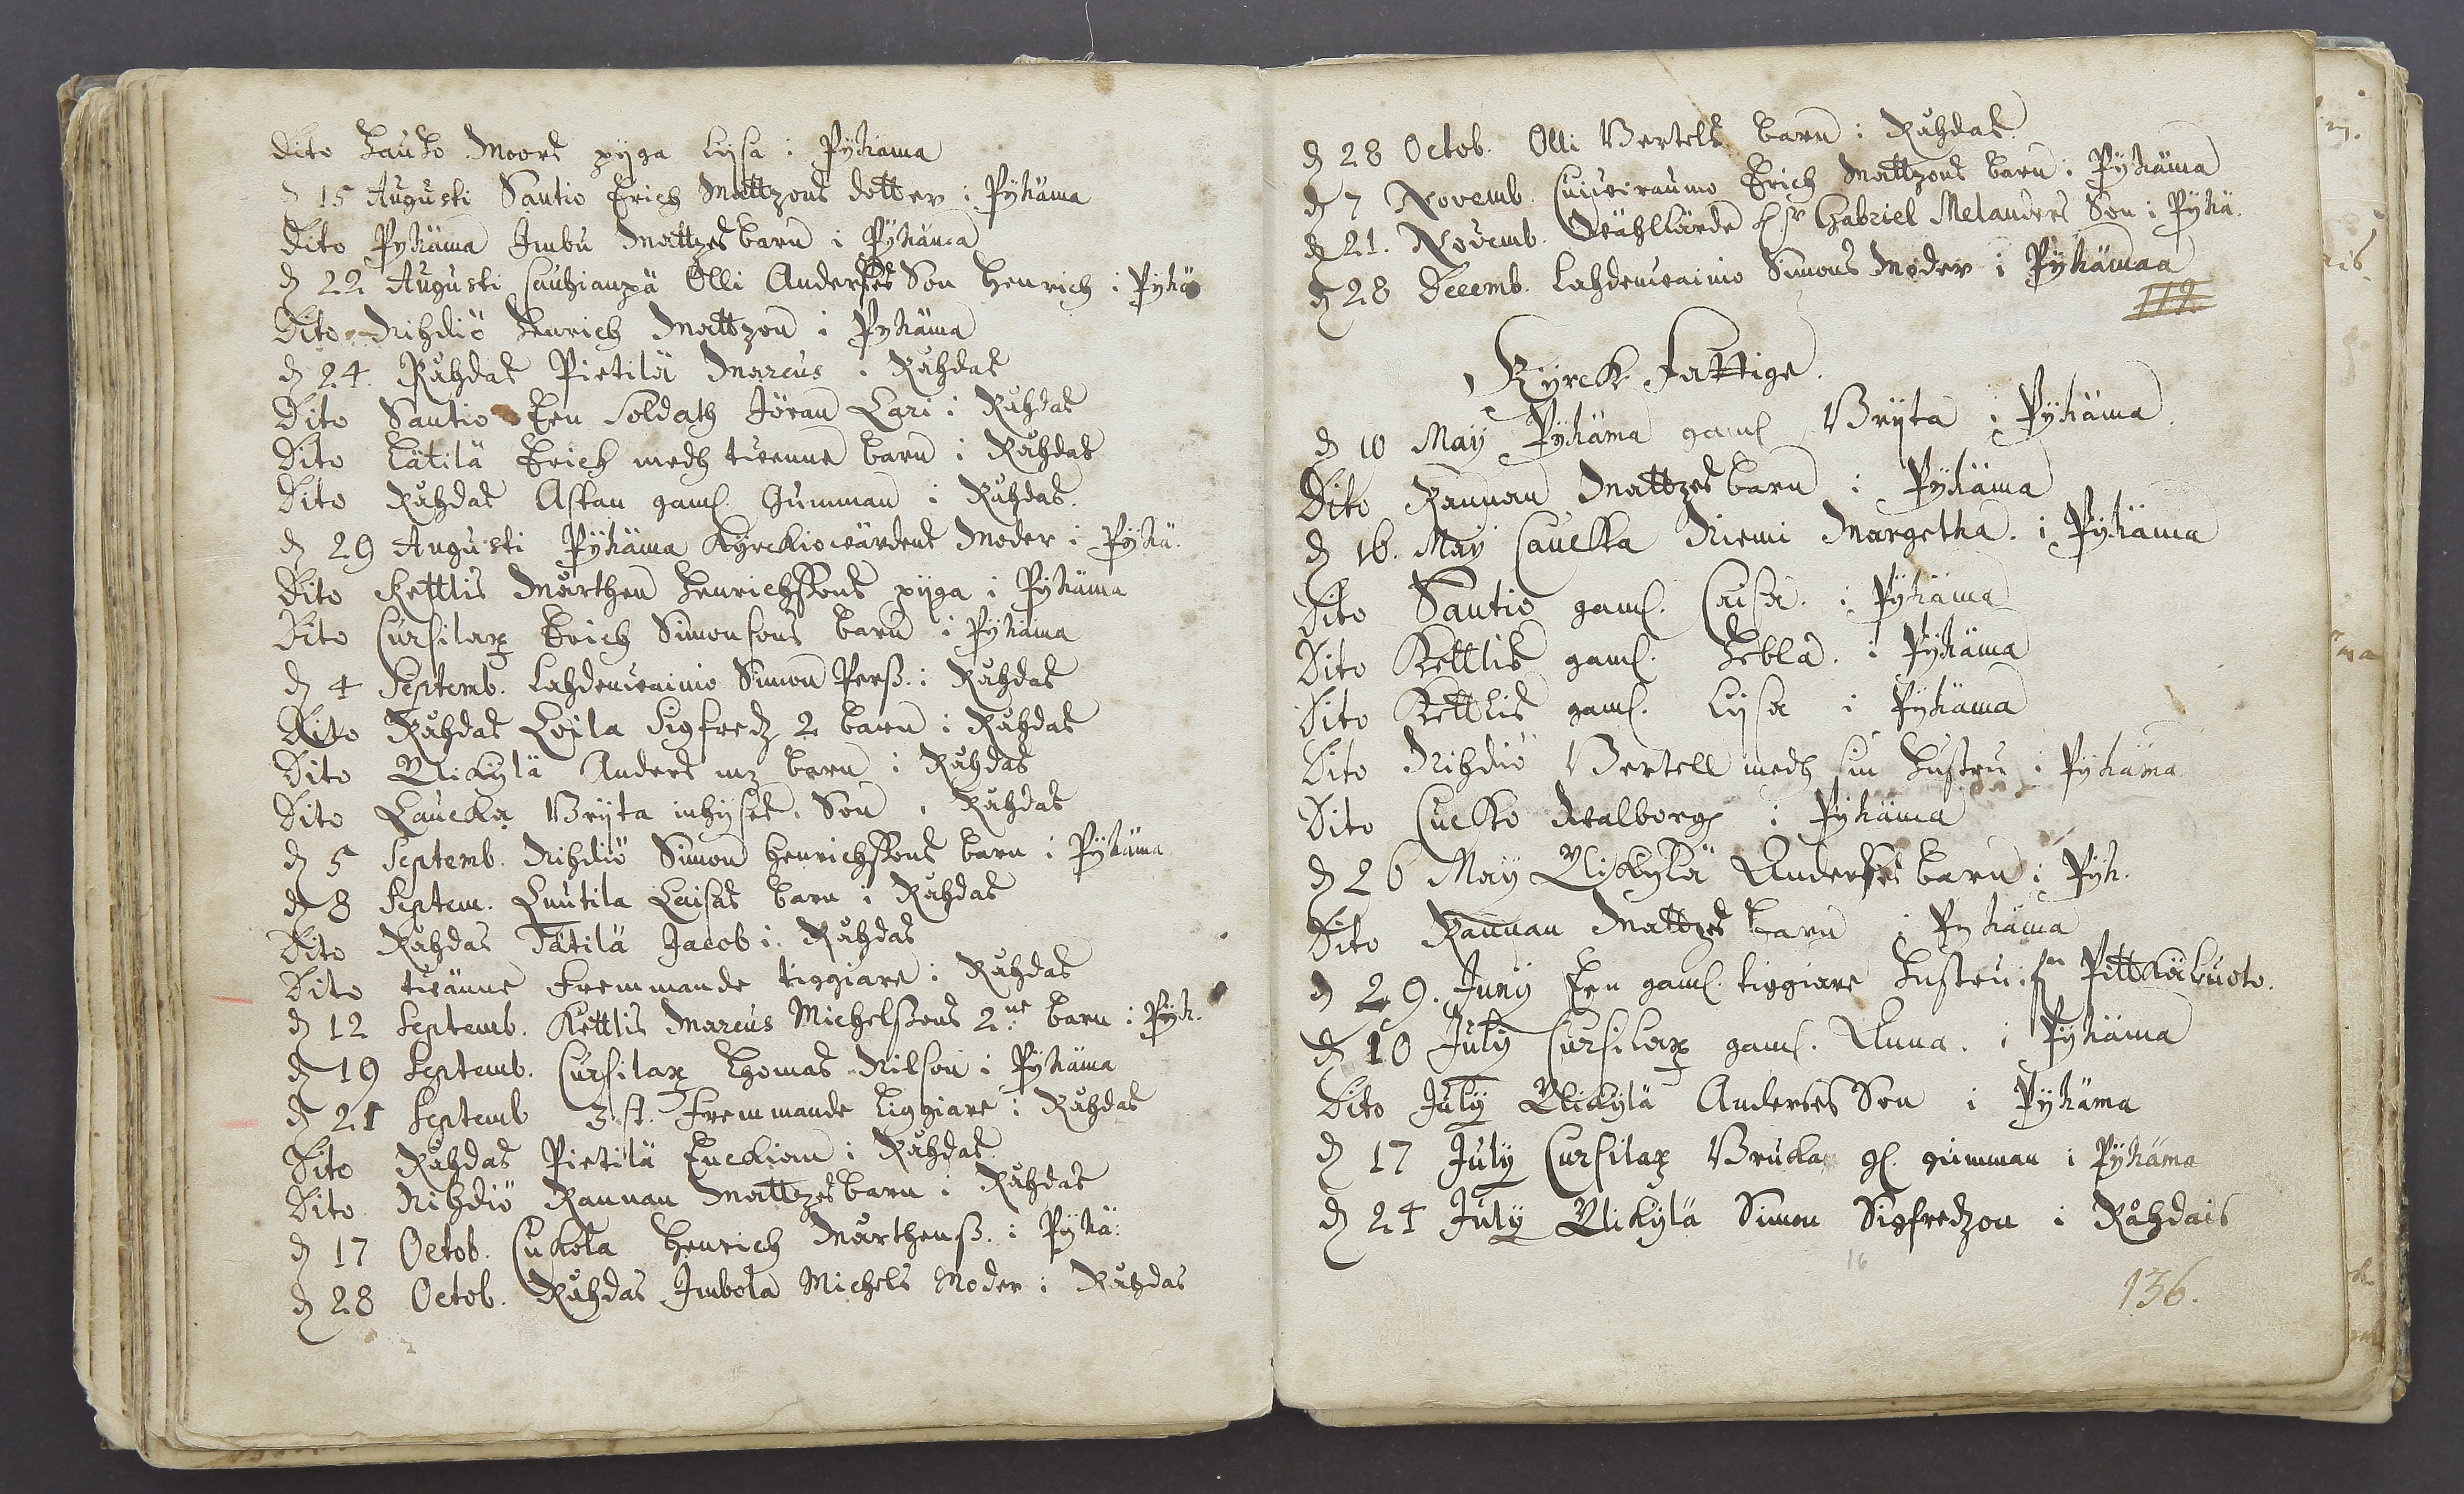 Dito Hauko Moors pyga Lijsa i Pyhäma
d 15 Augusti Santio Erich Mattzons dotter i Pyhäma
Dito Pyhäma Imbu Mattzes barn i Pyhäma
d 22 Augusti Cauhianpä Olli Anderses Son Henrich i Pyhä
Dito Nihdiö Henrich Mattzon i Pyhäma
d 24. Råhdas Pietilä Marcus i Råhdas
Dito Santio Een Soldath Jöran Lari i Råhdas
Dito Tätilä Erich medh twenne barn i Råhdas
Dito Råhdas Askan gaml. Gumman i Råhdas.
d 29 Augusti Pyhäma Kyrckiowärdens Moder i Pyhä.
Dito Kettlis Mårthen Henrichssons pyga i Pyhäma
Dito Cursilax Erich Simonsons barn i Pyhäma
d 4 Septemb. Lahdenwainio Simon Perss. i Råhdas
Dito Råhdas Loila Sigfredz 2 barn i Råhdas
Dito Ylikylä Anders mz barn i Råhdas
Dito Laucka Bryta inhyses Son i Råhdas
d 5 Septemb. Nihdiö Simon Henrichssons barn i Pyhäma
d 8 Septem. Knutila Caisas barn i Råhdas
Dito Råhdas Tätilä Jacob i Råhdas
Dito twänne Fremmande tiggiare i Råhdas
d 12 Septemb. Kettlis Marcus Michelssons 2ne barn i Pyh.
d 19 Septemb. Cursilax Thomas Nilson i Pyhäma
d 21 Septemb 3 st. Fremmande tiggiare i Råhdas
Dito Råhdas Pietilä Enckian i Råhdas
Dito Nihdiö Rannan Mattzes barn i Råhdas
d 17 Octob. Cukola Henrich Mårthenss. i Pyhä.
d 28 Octob. Råhdas Imbola Michels Moder i Råhdas
d 28 Octob. Olli Bertels barn i Råhdas
d 7 Novemb. Cuiwiraumo Erich Mattzons barn i Pyhäma
d 21. Novemb. Wählärde Hr Gabriel Melanders Son i Pyhä.
d 28 Decemb. Lahdenwainio Simons Moder i Pyhämaa
112
Kyrck Fattige.
d 10 May Pyhäma gaml Bryta i Pyhäma
Dito Rannan Mattzes barn i Pyhäma
d 16. May Caucka Niemi Margetha. i Pyhäma
Dito Santio gaml. Caisa. i Pyhäma
Dito Kettlis gaml. Hebla. i Pyhäma
Dito Kettlis gaml. Lijsa i Pyhäma
Dito Nihdiö Bertell medh sin Hustru i Pyhäma
Dito Cucko Walborg i Pyhäma
d 26 May Ylikylä Anderses barn i Pyh.
Dito Rannan Mattzes barn i Pyhäma
d 29. Juny Een gaml. tiggiare Hustru från Pittkäluoto.
d 10 July Cursilax gaml. Anna. i Pyhäma
Dito July Ylikylä Anderses Son i Pyhäma
d 17 July Cursilax Bruska gl. gumman i Pyhäma
d 24 July Ylikylä Simon Sigfredzon i Råhdais
16
136.